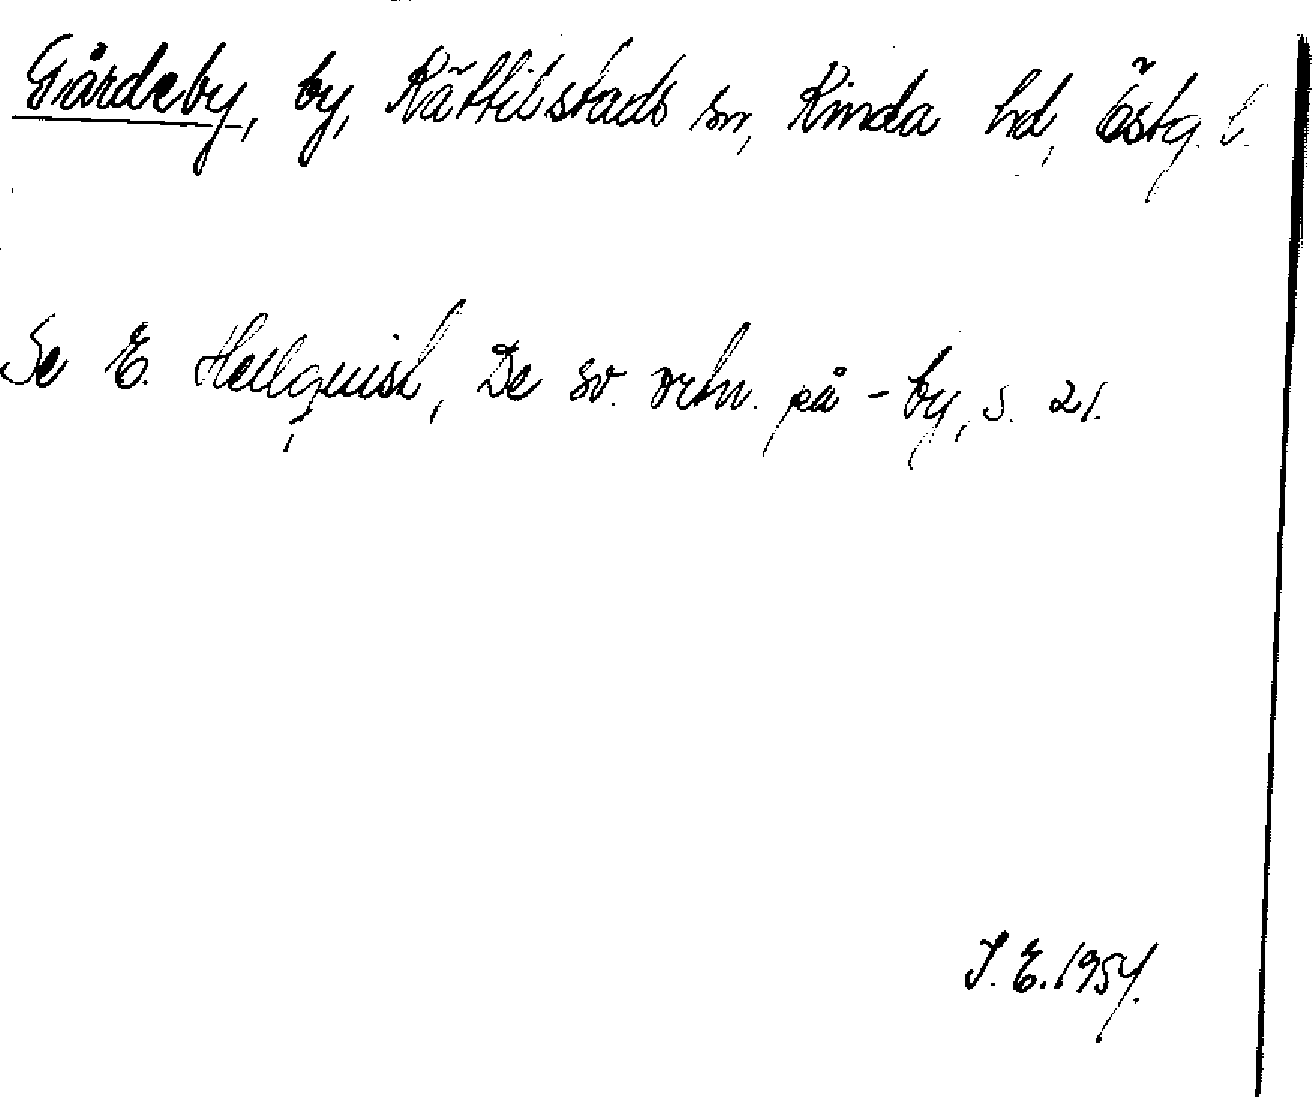 Gårdeby, by, Kättilstads sn, Kinda hd, Östg. l.
Se E. Hellquist, De sv. ortn. på -by, s. 21.
I. E. 1954.